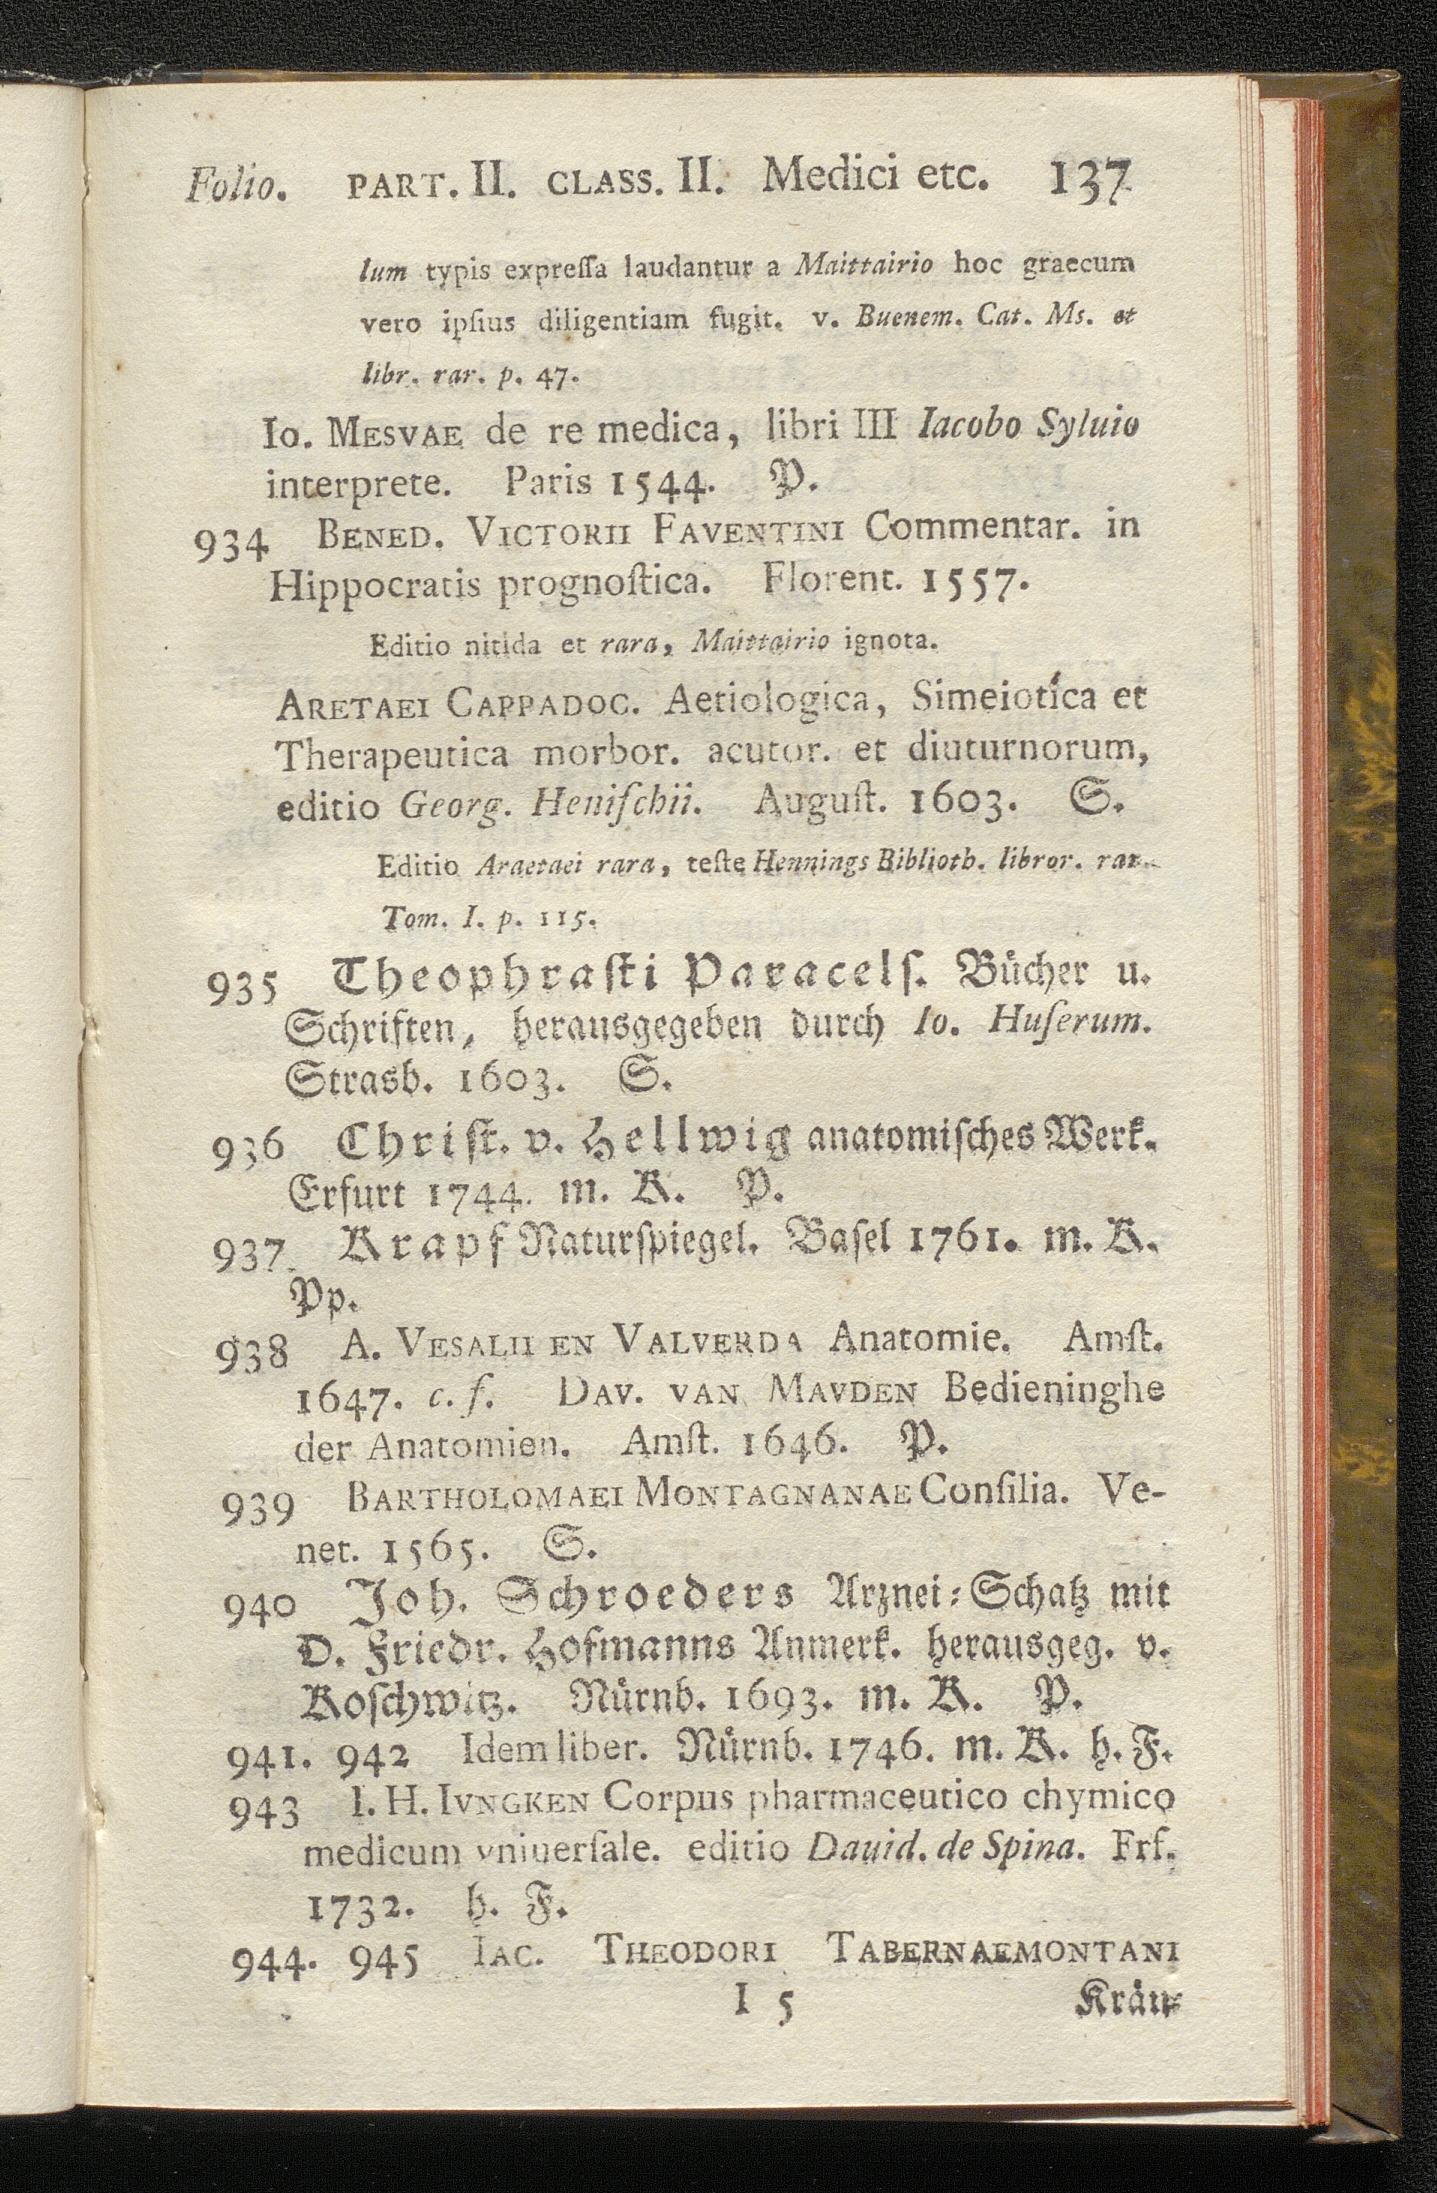 Folio. PART. II. CLASS. II. Medici etc. 137
lum typis expreſſa laudantur a Maittairio hoc graecum
vero ipſius diligentiam fugit. v. Buenem. Cat. Ms. et
libr. rar. p. 47.
Io. MESVAE de re medica, libri III Iacobo Syluio
interprete. Paris 1544. P.
934 BENED. VICTORII FAVENTINI Commentar. in
Hippocratis prognoſtica. Florent. 1557.
Editio nitida et rara, Maittairio ignota.
ARETAEI CAPPADOC. Aetiologica, Simeiotica et
Therapeutica morbor. acutor. et diuturnorum,
editio Georg. Heniſchii. Auguſt. 1603. S.
Editio Araetaei rara, teſte Hennings Biblioth. libror. rar.
Tom. I. p. 115.
935 Theophraſti Paracelſ. Bücher u.
Schriften, herausgegeben durch Io. Huſerum.
Strasb. 1603. S.
936 Chriſt. v. Hellwig anatomiſches Werk.
Erfurt 1744. m. K. P.
937. Krapf Naturſpiegel. Baſel 1761. m. K.
Pp.
938 A. VESALII EN VALVERDA Anatomie. Amſt.
1647. c. f. DAV. VAN MAVDEN Bedieninghe
der Anatomien. Amſt. 1646. P.
939 BARTHOLOMAEI MONTAGNANAE Conſilia. Ve-
net. 1565. S.
940 Joh. Schroeders Arznei-Schatz mit
D. Friedr. Hofmanns Anmerk. herausgeg. v.
Koſchwitz. Nürnb. 1693. m. K. P.
941. 942 Idem liber. Nürnb. 1746. m. K. h. F.
943 I. H. IVNGKEN Corpus pharmaceutico chymico
medicum vniuerſale. editio Dauid. de Spina. Frf.
1732. h. F.
944. 945 IAC. THEODORI TABERNAEMONTANI
I 5 Kräu-